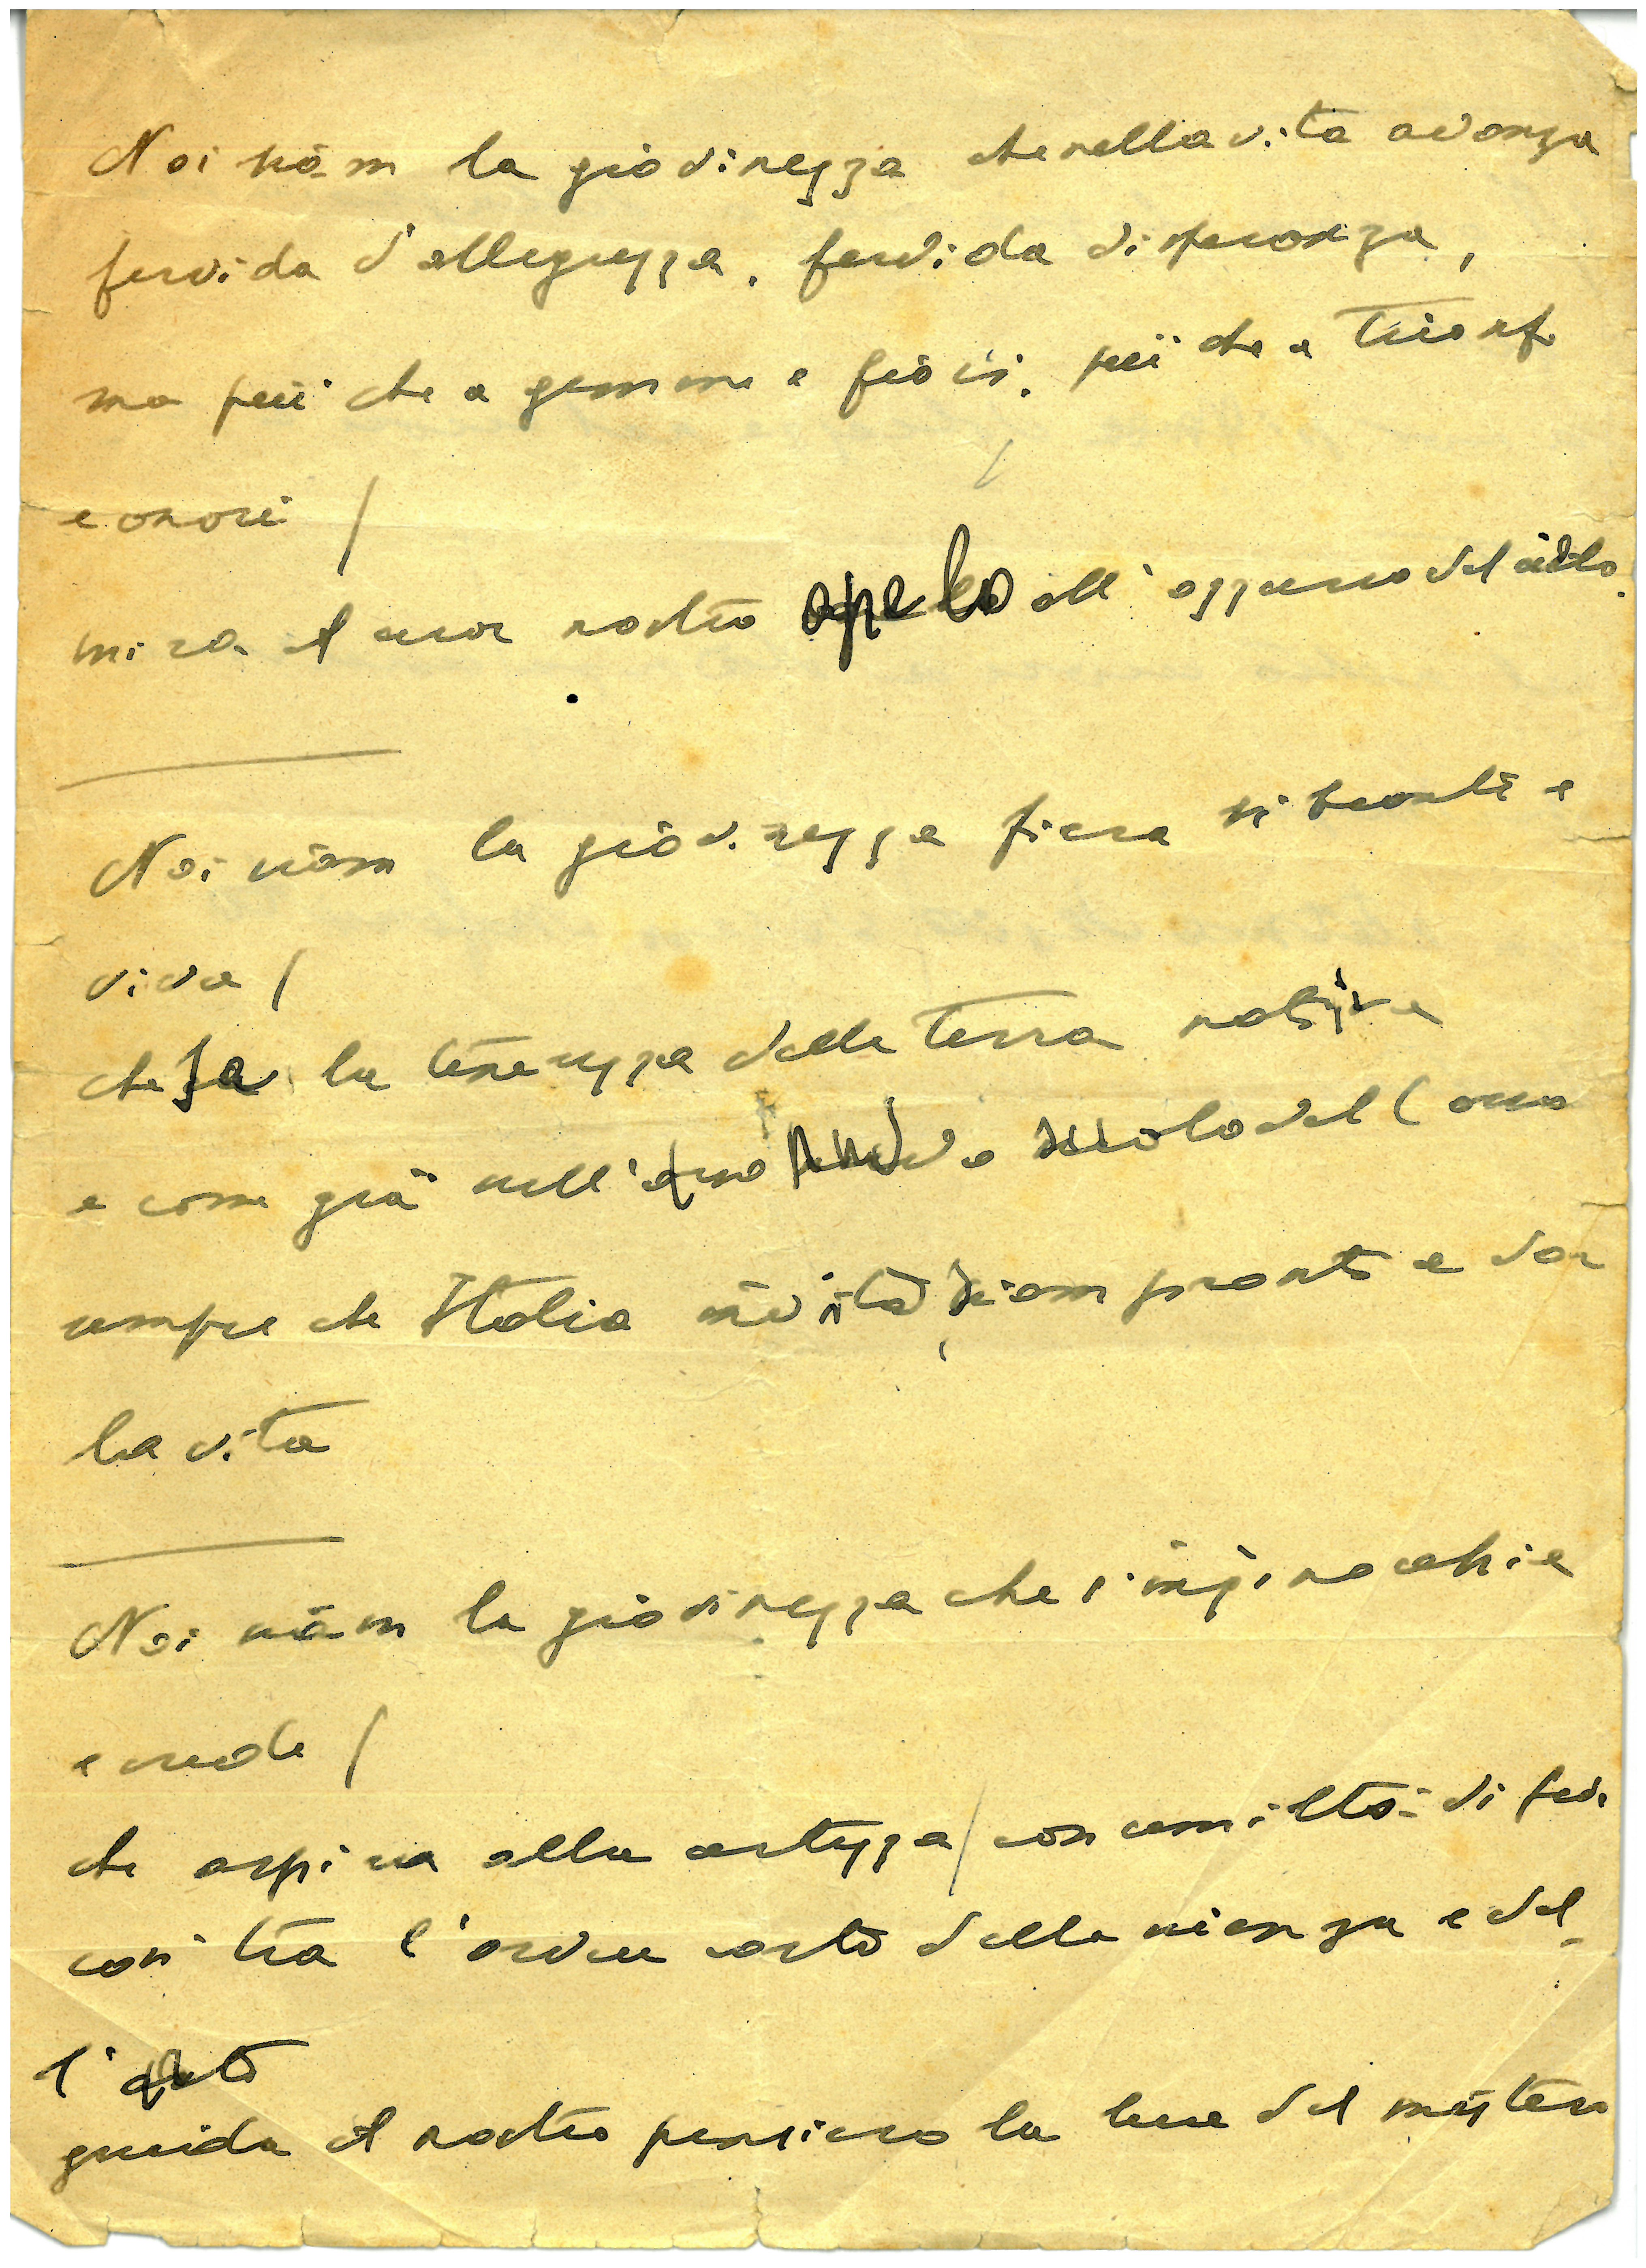 Noi siam la giovinezza che nella vita avanza
fervida d'allegrezza, fervida di speranza,
ma più che a gemme e fiori, più che a trionfi
e onori /
mira il cuor nostro anelo all'azzurro del cielo.
Noi siam la giovinezza fiera vibrante e
viva /
che sa la tenerezza della terra nativa
e come già nell' suolo del Carso
sempre che Italia invita, siam pronti a dar
la vita
Noi siam la giovinezza che s'inginocchia
e crede /
che aspira alla certezza / con umiltà di fede
così tra l'arduo della scienza e del-
l'arte
guida il nostro pensiero la luce del mistero